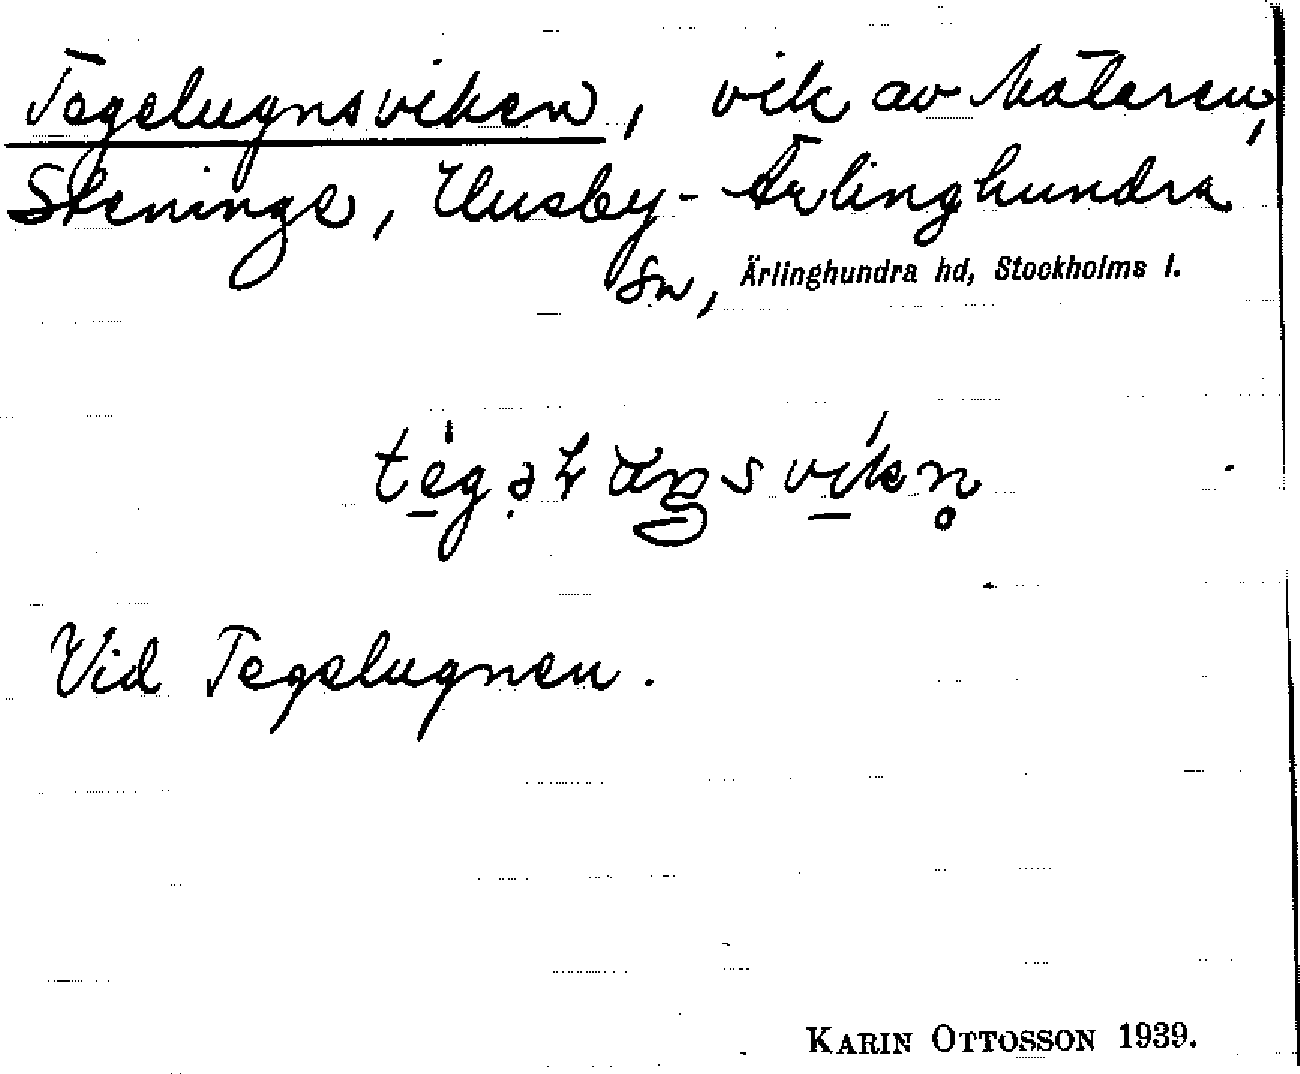 Tegelugnsviken, vik av Mälaren,
Steninge, Husby-Ärlinghundra
sn, Ärlinghundra hd, Stockholms l.
Vid Tegelugnen.
KARIN OTTOSSON 1939.